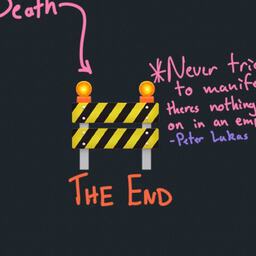 Death
*Never trie
to manife
theres nothing
on in an emp
-Peter Lukas
THE END